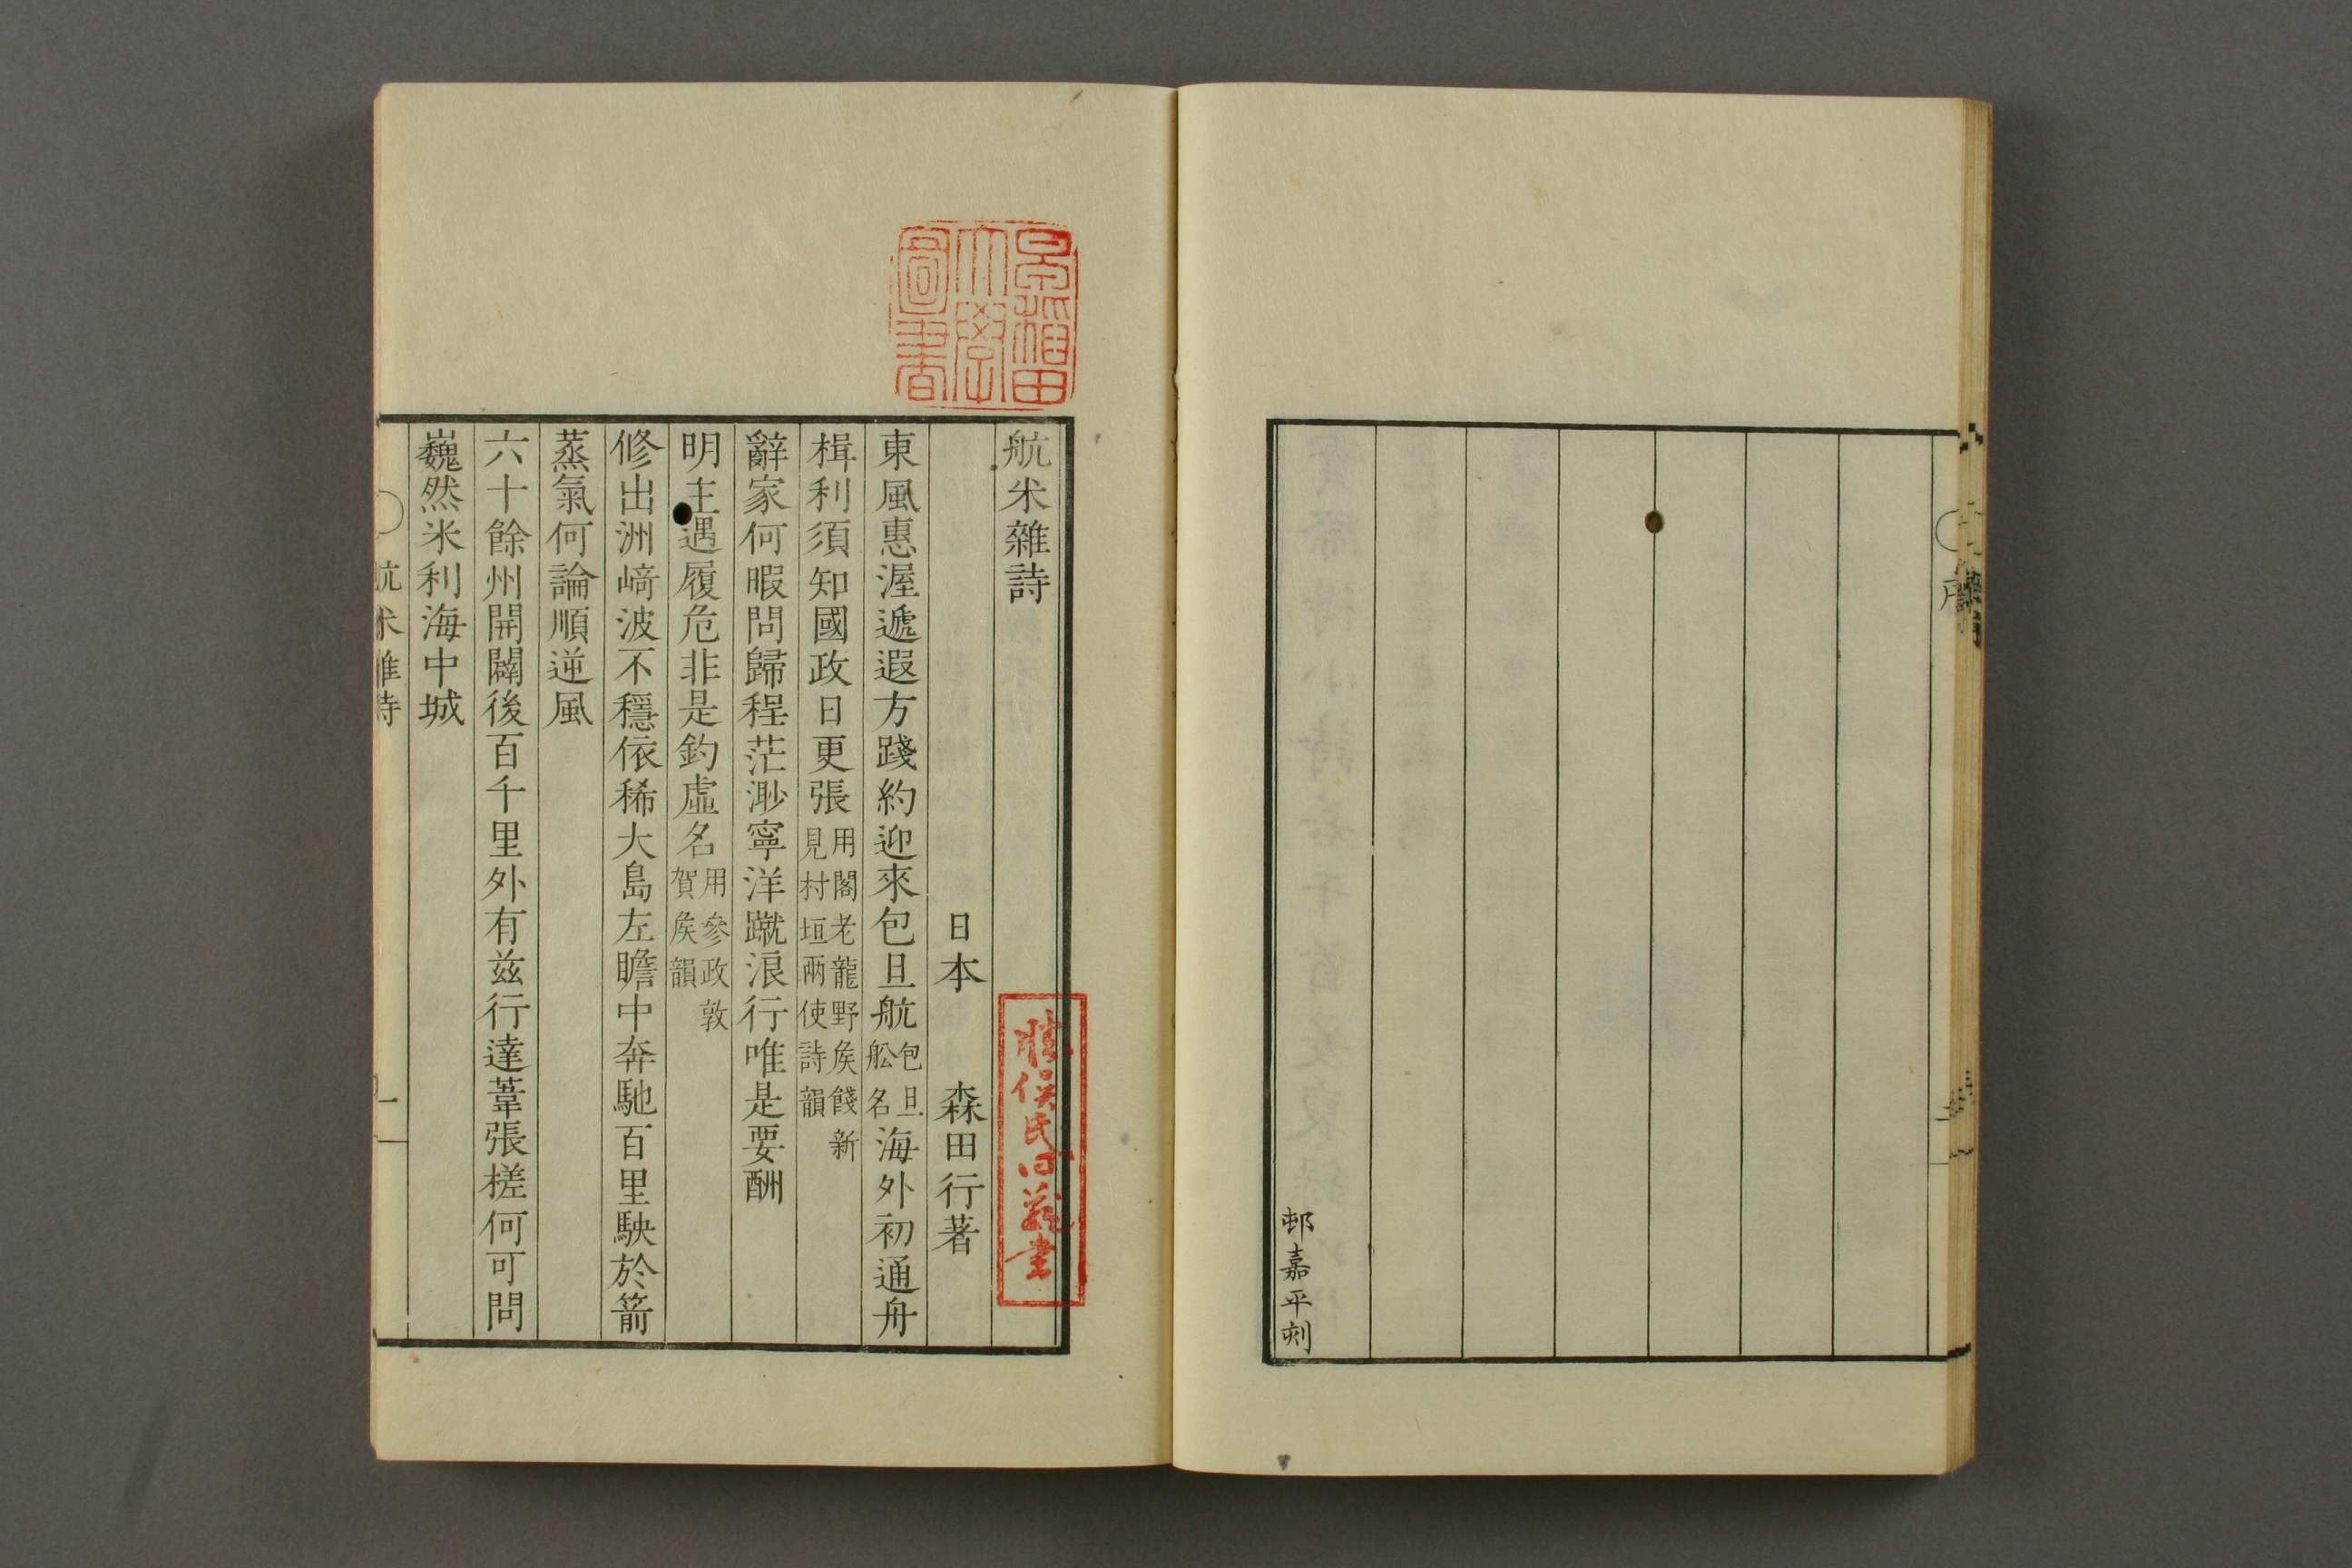 邨嘉平刻
早稻田大學圖書
航米雜詩
日本 森田行著
東風惠渥遞遐方踐約迎來包旦航包旦舩名海外初通舟
楫利須知國政日更張用閣老龍野矦餞新見村垣兩使詩韻
辭家何暇問歸程茫渺寧洋蹴浪行唯是要酬
明主遇履危非是釣虛名用參政敦賀矦韻
修出洲﨑波不穩依稀大島左瞻中奔馳百里駛於箭
蒸氣何論順逆風
六十餘州開闢後百千里外有茲行達葦張槎何可問
巍然米利海中城
航米雜詩
一